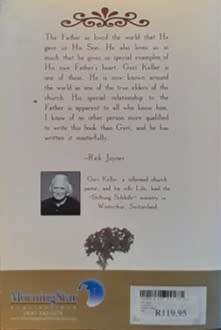 The Father so loved the world that He
gave us His Son. He also loves us so
much that he gives us special examples of
His own Father's heart. Gwri Keller is
one of these. He is now known around
the world as one of the true elders of the
church. His special relationship to the
Father is apparent to all who know him.
I know of no other person more qualified
to write this book than Gwri, and he has
written it masterfully.
–Rick Joyner
Keller, a reformed church
pastor, and his wife Lilo, lead the
«Stiftung Schleife» ministry in
Winterthur, Switzerland.
MorningStar
PUBLICATIONS
R119.95